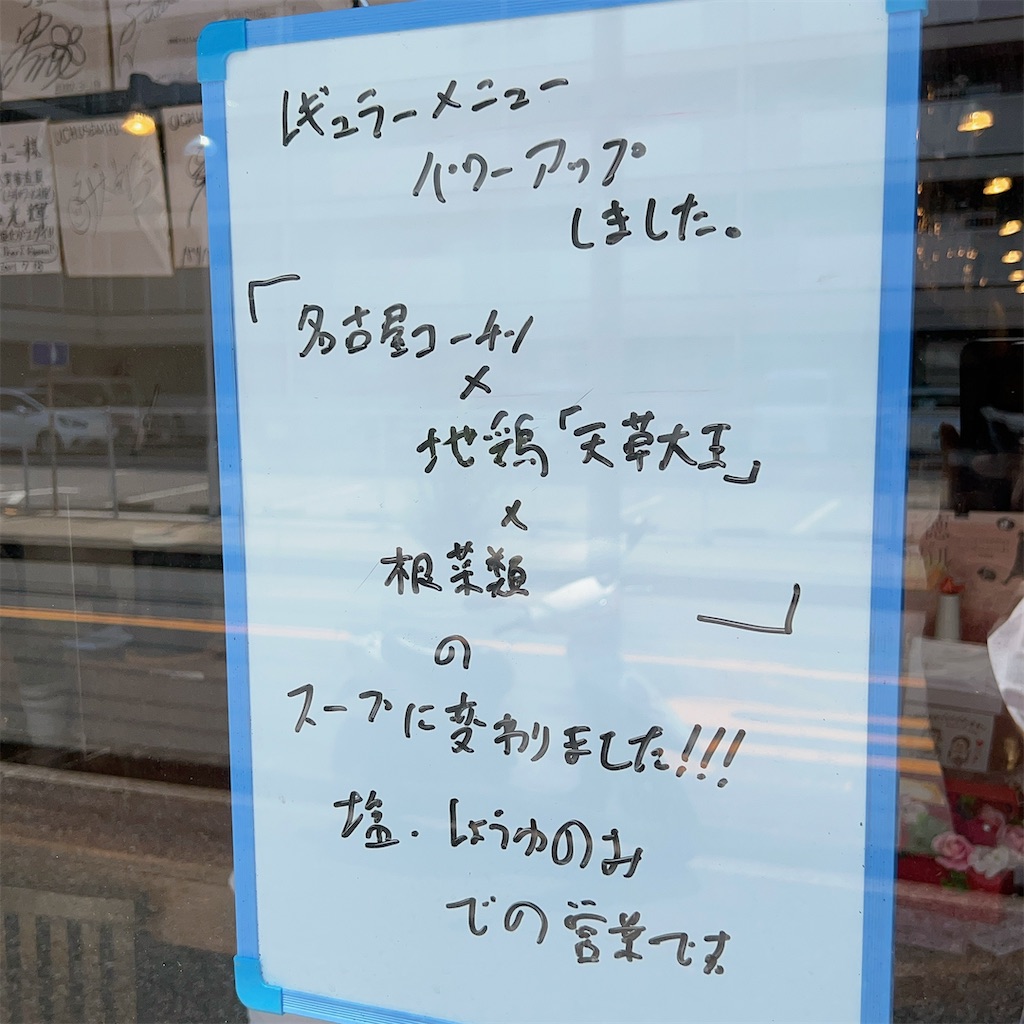 レギュラーメニュー
パワーアップ
しました。
「名古屋コーチン
×
地鶏「天草大王」
×
根菜類」
の
スープに変わりました!!!
塩・しょうゆのみ
での営業です